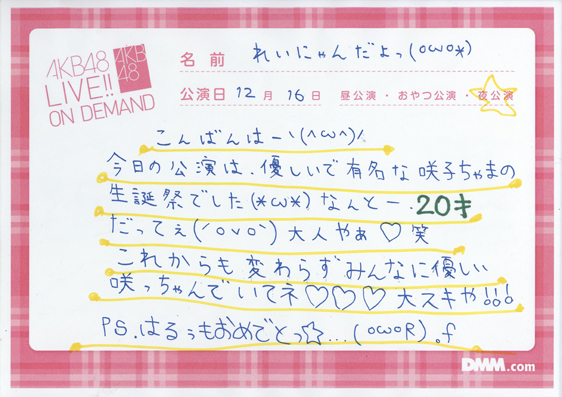 AKB48
LIVE!!
ON DEMAND
AKB
48
名前 れいにゃんだよっ(○ω○*)
公演日 12月16日 昼公演・おやつ公演・夜公演
こんばんはーヽ(^ω^)ノ
今日の公演は、優しいで有名な咲子ちゃまの
生誕祭でした(*ω*)なんとー、20才
だってぇ(´○v○`)大人やぁ♡笑
これからも変わらずみんなに優しい
咲っちゃんでいてネ♡♡♡大スキや!!!
P.S.はるぅもおめでとっ☆…(○ω○R).f
DMM.com